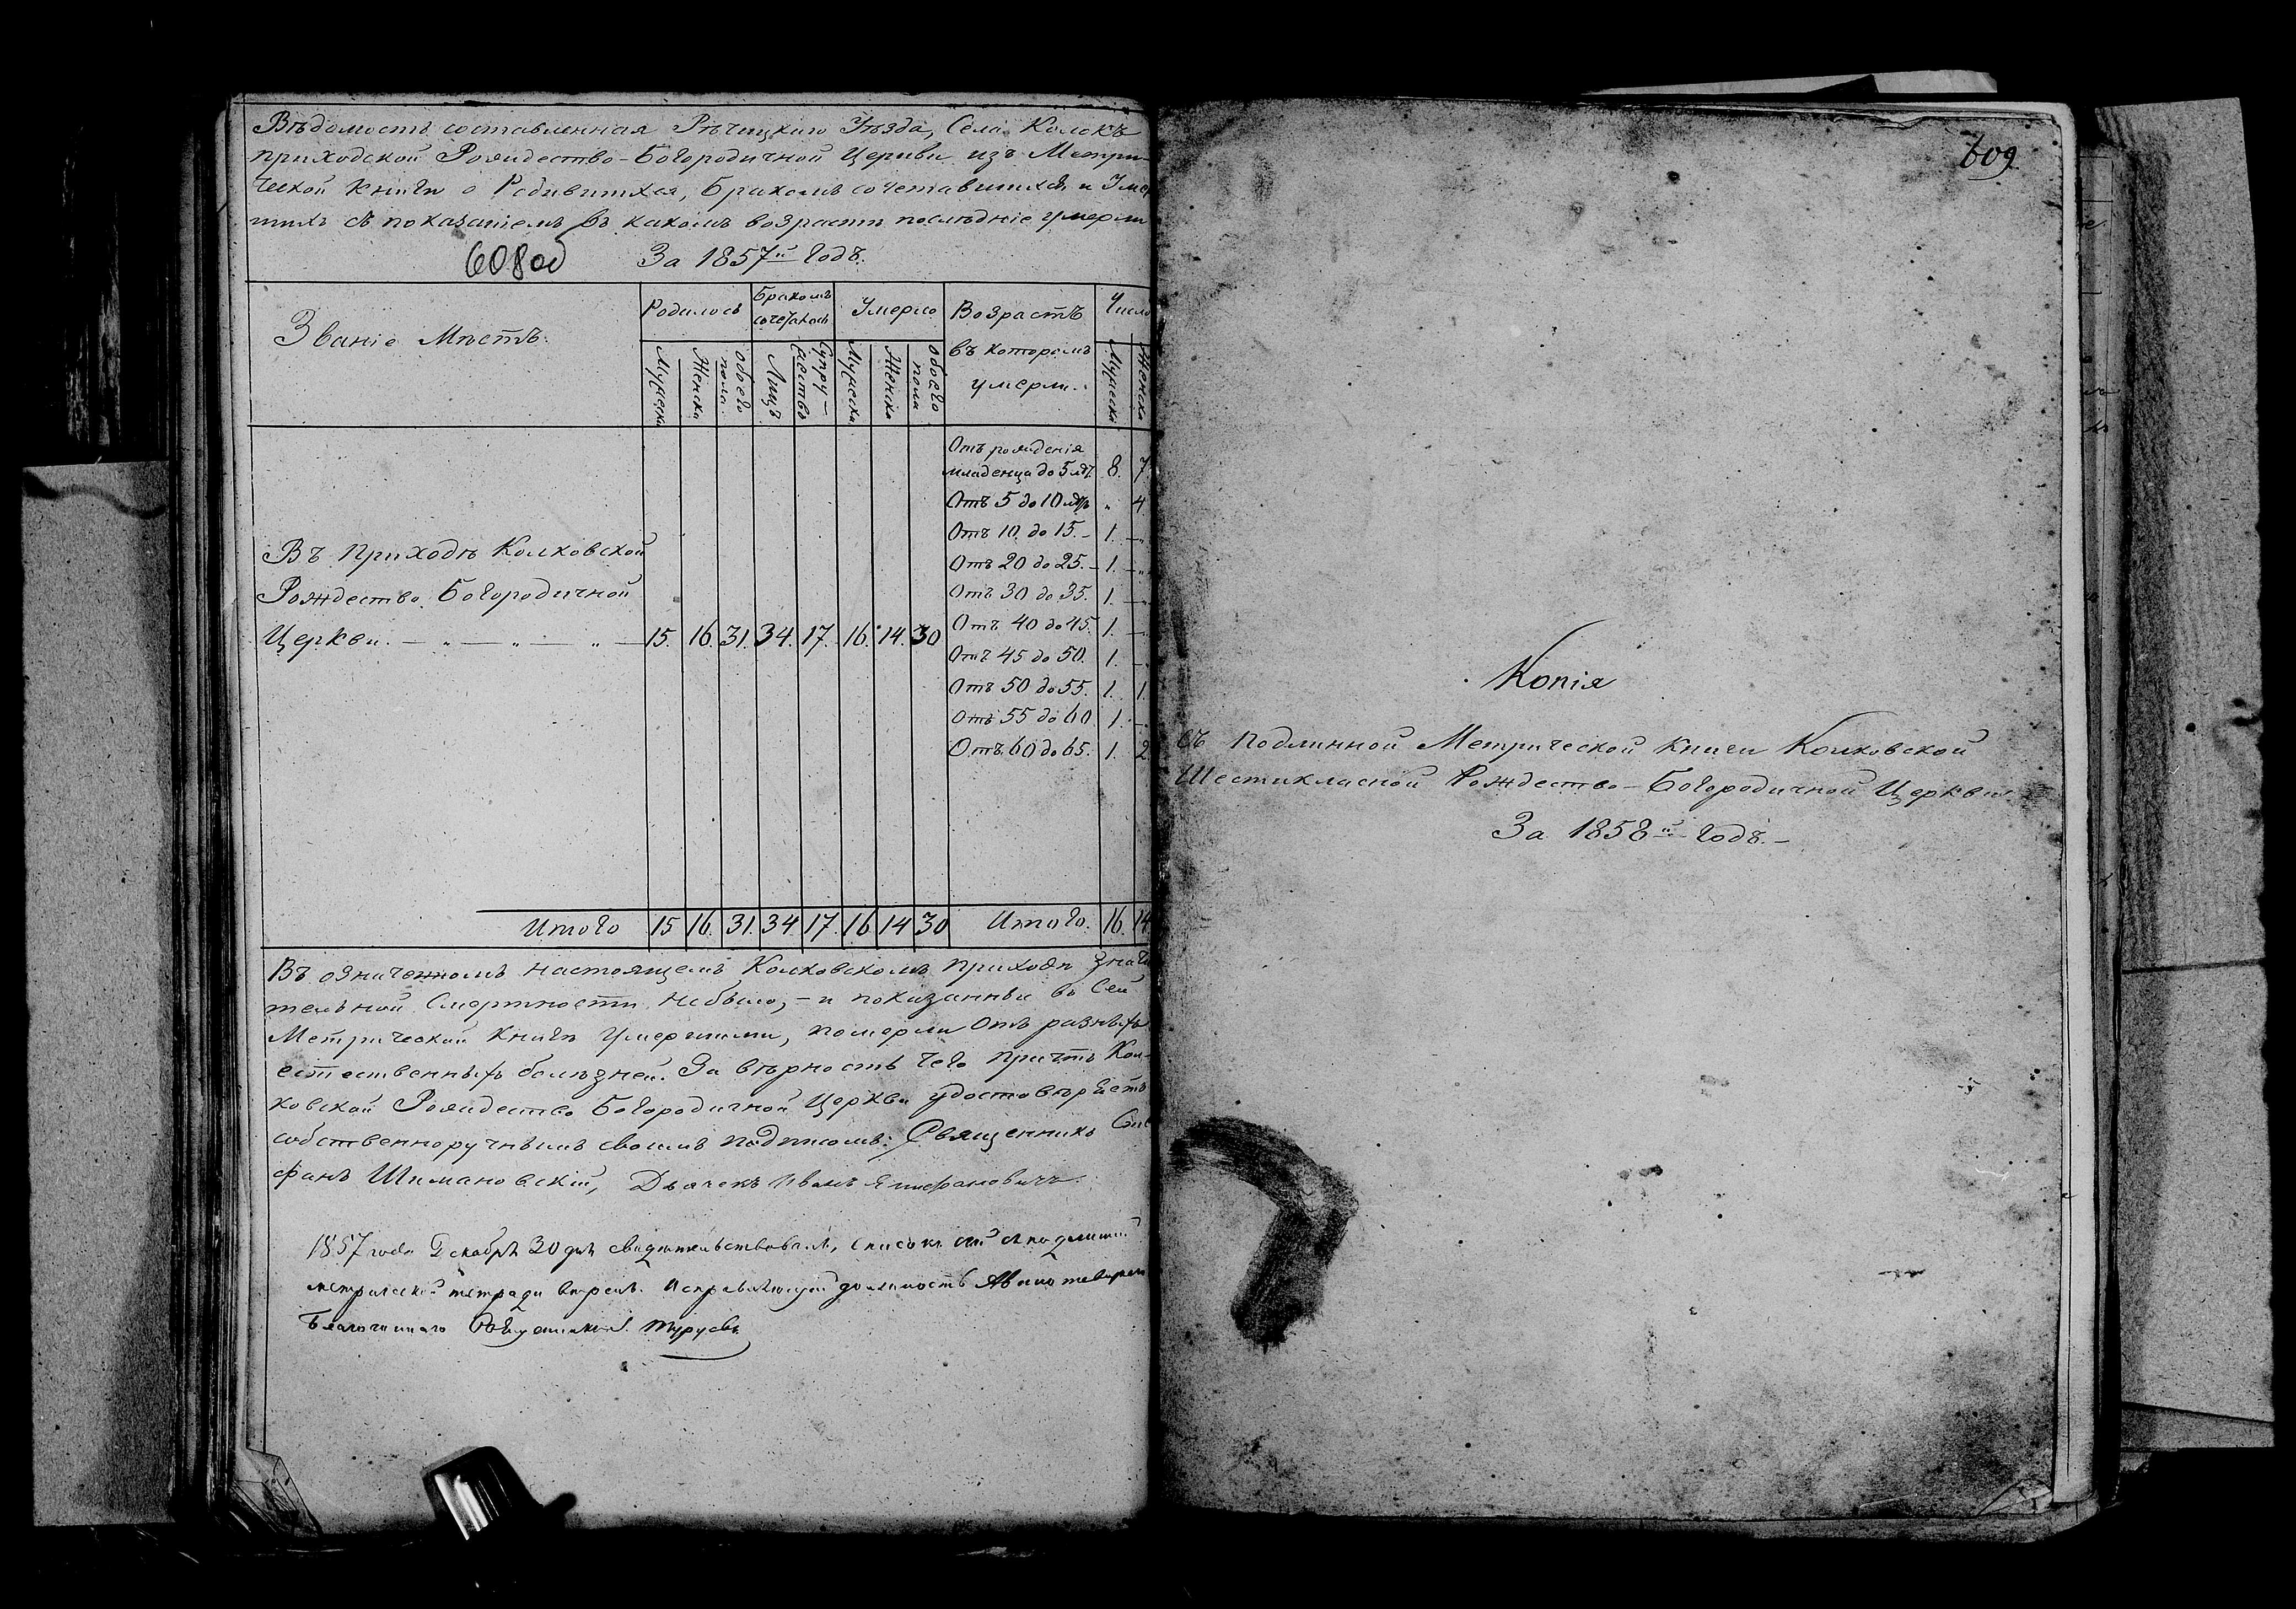 Вѣдомость составленная Рѣчицкаго Уѣзда, Села Колокъ
приходской Рождество-Богородичной Церкви изъ Метри-
ческой книги о Родившихся, Бракомъ сочетавшихся и Умер
шихъ съ показаніемъ въ какомъ возрастѣ послѣдніе умерли
608 об За 1857й Годъ.
Званіе Мѣстъ. Родилось Бракомъ сочетались Умерло Возрастъ въ которомъ умерли. Число
Мужеска Женска обоего пола. Лицъ Супру-жествъ Мужеска Женска обоего пола Мужеска Женска
Отъ рожденія
младенца до 5 лѣт 8. 7.
Отъ 5 до 10 лѣтъ „ 4
Отъ 10 до 15. - 1. - „
Отъ 20 до 25. - 1. - „
Отъ 30 до 35. 1. - „
Отъ 40 до 45. 1. -
Отъ 45 до 50. 1. -
Отъ 50 до 55. 1. 1.
Отъ 55 до 60 1. -
Отъ 60 до 65. 1. 2
Въ Приходѣ Колковской
Рождество Богородичной
Церкви. — „ — „ — „ — 15. 16. 31. 34. 17. 16. 14. 30
Итого 15 16. 31. 34. 17. 16 14 30 Итого. 16. 14
Въ означенномъ настоящемъ Колковскомъ Приходѣ значи
тельной Смертности небыло, - и показанныи въ сей
Метрической Книгѣ Умершими, померли Отъ разныхъ
естественныхъ болѣзней. За вѣрность чего причтъ Кол-
ковской Рождество Богородичной Церкви удостовѣряетъ
собственноручнымъ своимъ подписомъ: Священникъ Сте
фанъ Шимановскій, Дьячекъ Иванъ Епифановичъ.
1857 года Декабря 30 дня свидетельствовалъ, списокъ сей съ подлинной
метрической тетради вѣренъ. Исправляющій должность
Благочиннаго Священникъ
609.
Копія
съ подлинной Метрической книги Колковской
Шестикласной Рождество-Богородичной Церкви
За 1858й Годъ. -